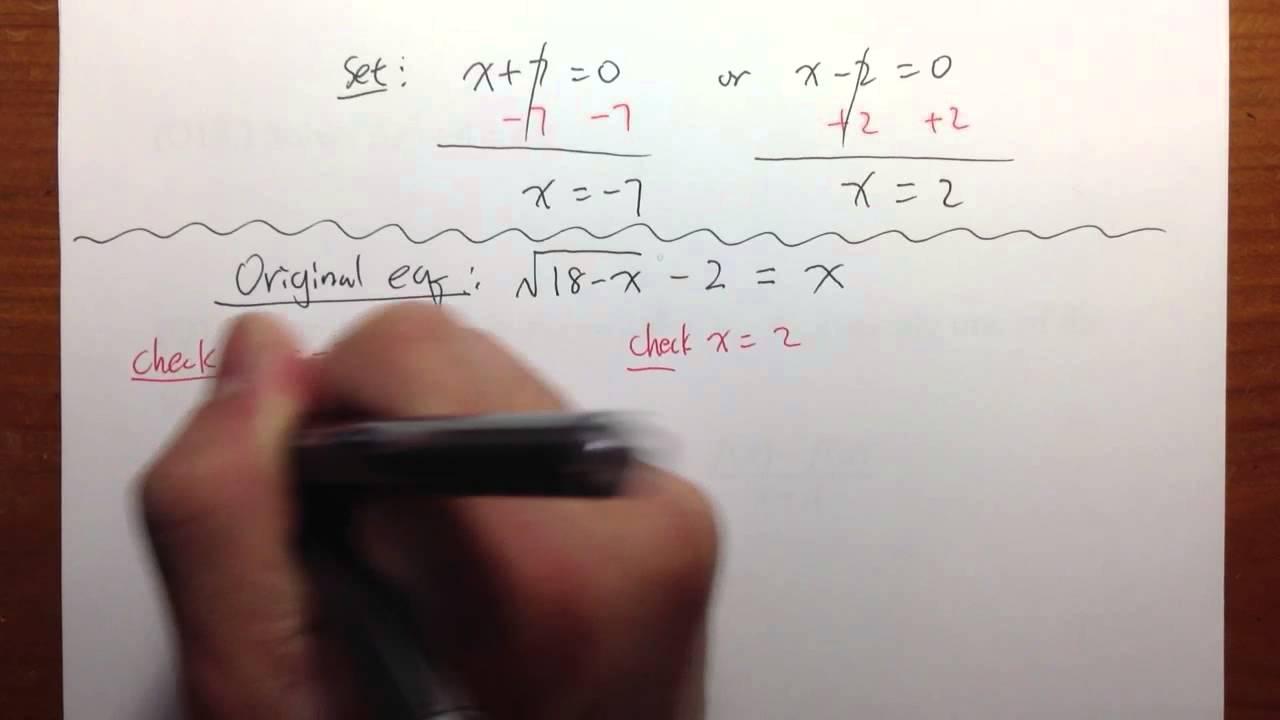 Set: x+7 =0 or x-2 =0
-7 -7 +2 +2
x =-7 x = 2
Original eq: √18-x - 2 = x
check x = 2
check